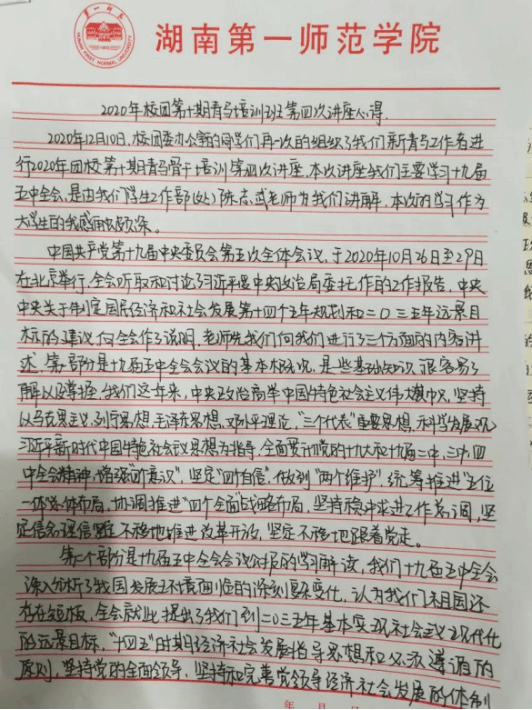 湖南第一师范学院
2020年校团第十期青马培训班第四次讲座心得
2020年12月10日，校团委办公室的同学们再一次的组织了我们新青马工作者进
行2020年团校第十期青马骨干培训第四次讲座，本次讲座我们主要学习十九届
五中全会，是由我们学生工作部(处)陈志老师为我们讲解，本次的学习作为
大学生的我感触颇深。
中国共产党第十九届中央委员会第五次全体会议，于2020年10月26日至29日
在北京举行，全会听取和讨论了习近平受中央政治局委托作的工作报告，中央
中央关于制定国民经济和社会发展第十四个五年规划和二〇三五年远景目
标的建议向全会作了说明，老师先我们向我们进行了三个方面的内容讲
述。第一部分是十九届五中全会会议的基本概况，是些基础知识，很容易了
解以及掌握。我们这一年来，中央政治局高举中国特色社会主义伟大旗帜，坚持
以马克思主义，列宁思想，毛泽东思想，邓小平理论，“三个代表”重要思想，科学发展观
习近平新时代中国特色社会主义思想为指导，全面贯彻党的十九大和十九届二中，三中，四
中全会精神，增强“四个意识”，坚定“四个自信”，做到“两个维护”，统筹推进“五位
一体”总体布局，协调推进“四个全面”战略布局，坚持稳中求进工作总基调，坚
定信念 不移地推进改革开放，坚定不移地跟着党走。
第二个部分是十九届五中全会会议对应的学习解读，我们十九届五中全会
深入分析了我国发展环境面临的深刻复杂变化，认为我们祖国还
存在短板，全会就此提出了我们到二〇三五年基本实现社会主义现代化
的远景目标，“十四五”时期经济社会发展指导思想和必须遵循的
原则，坚持党的全面领导，坚持和完善党领导经济社会发展的体制
年 月 日